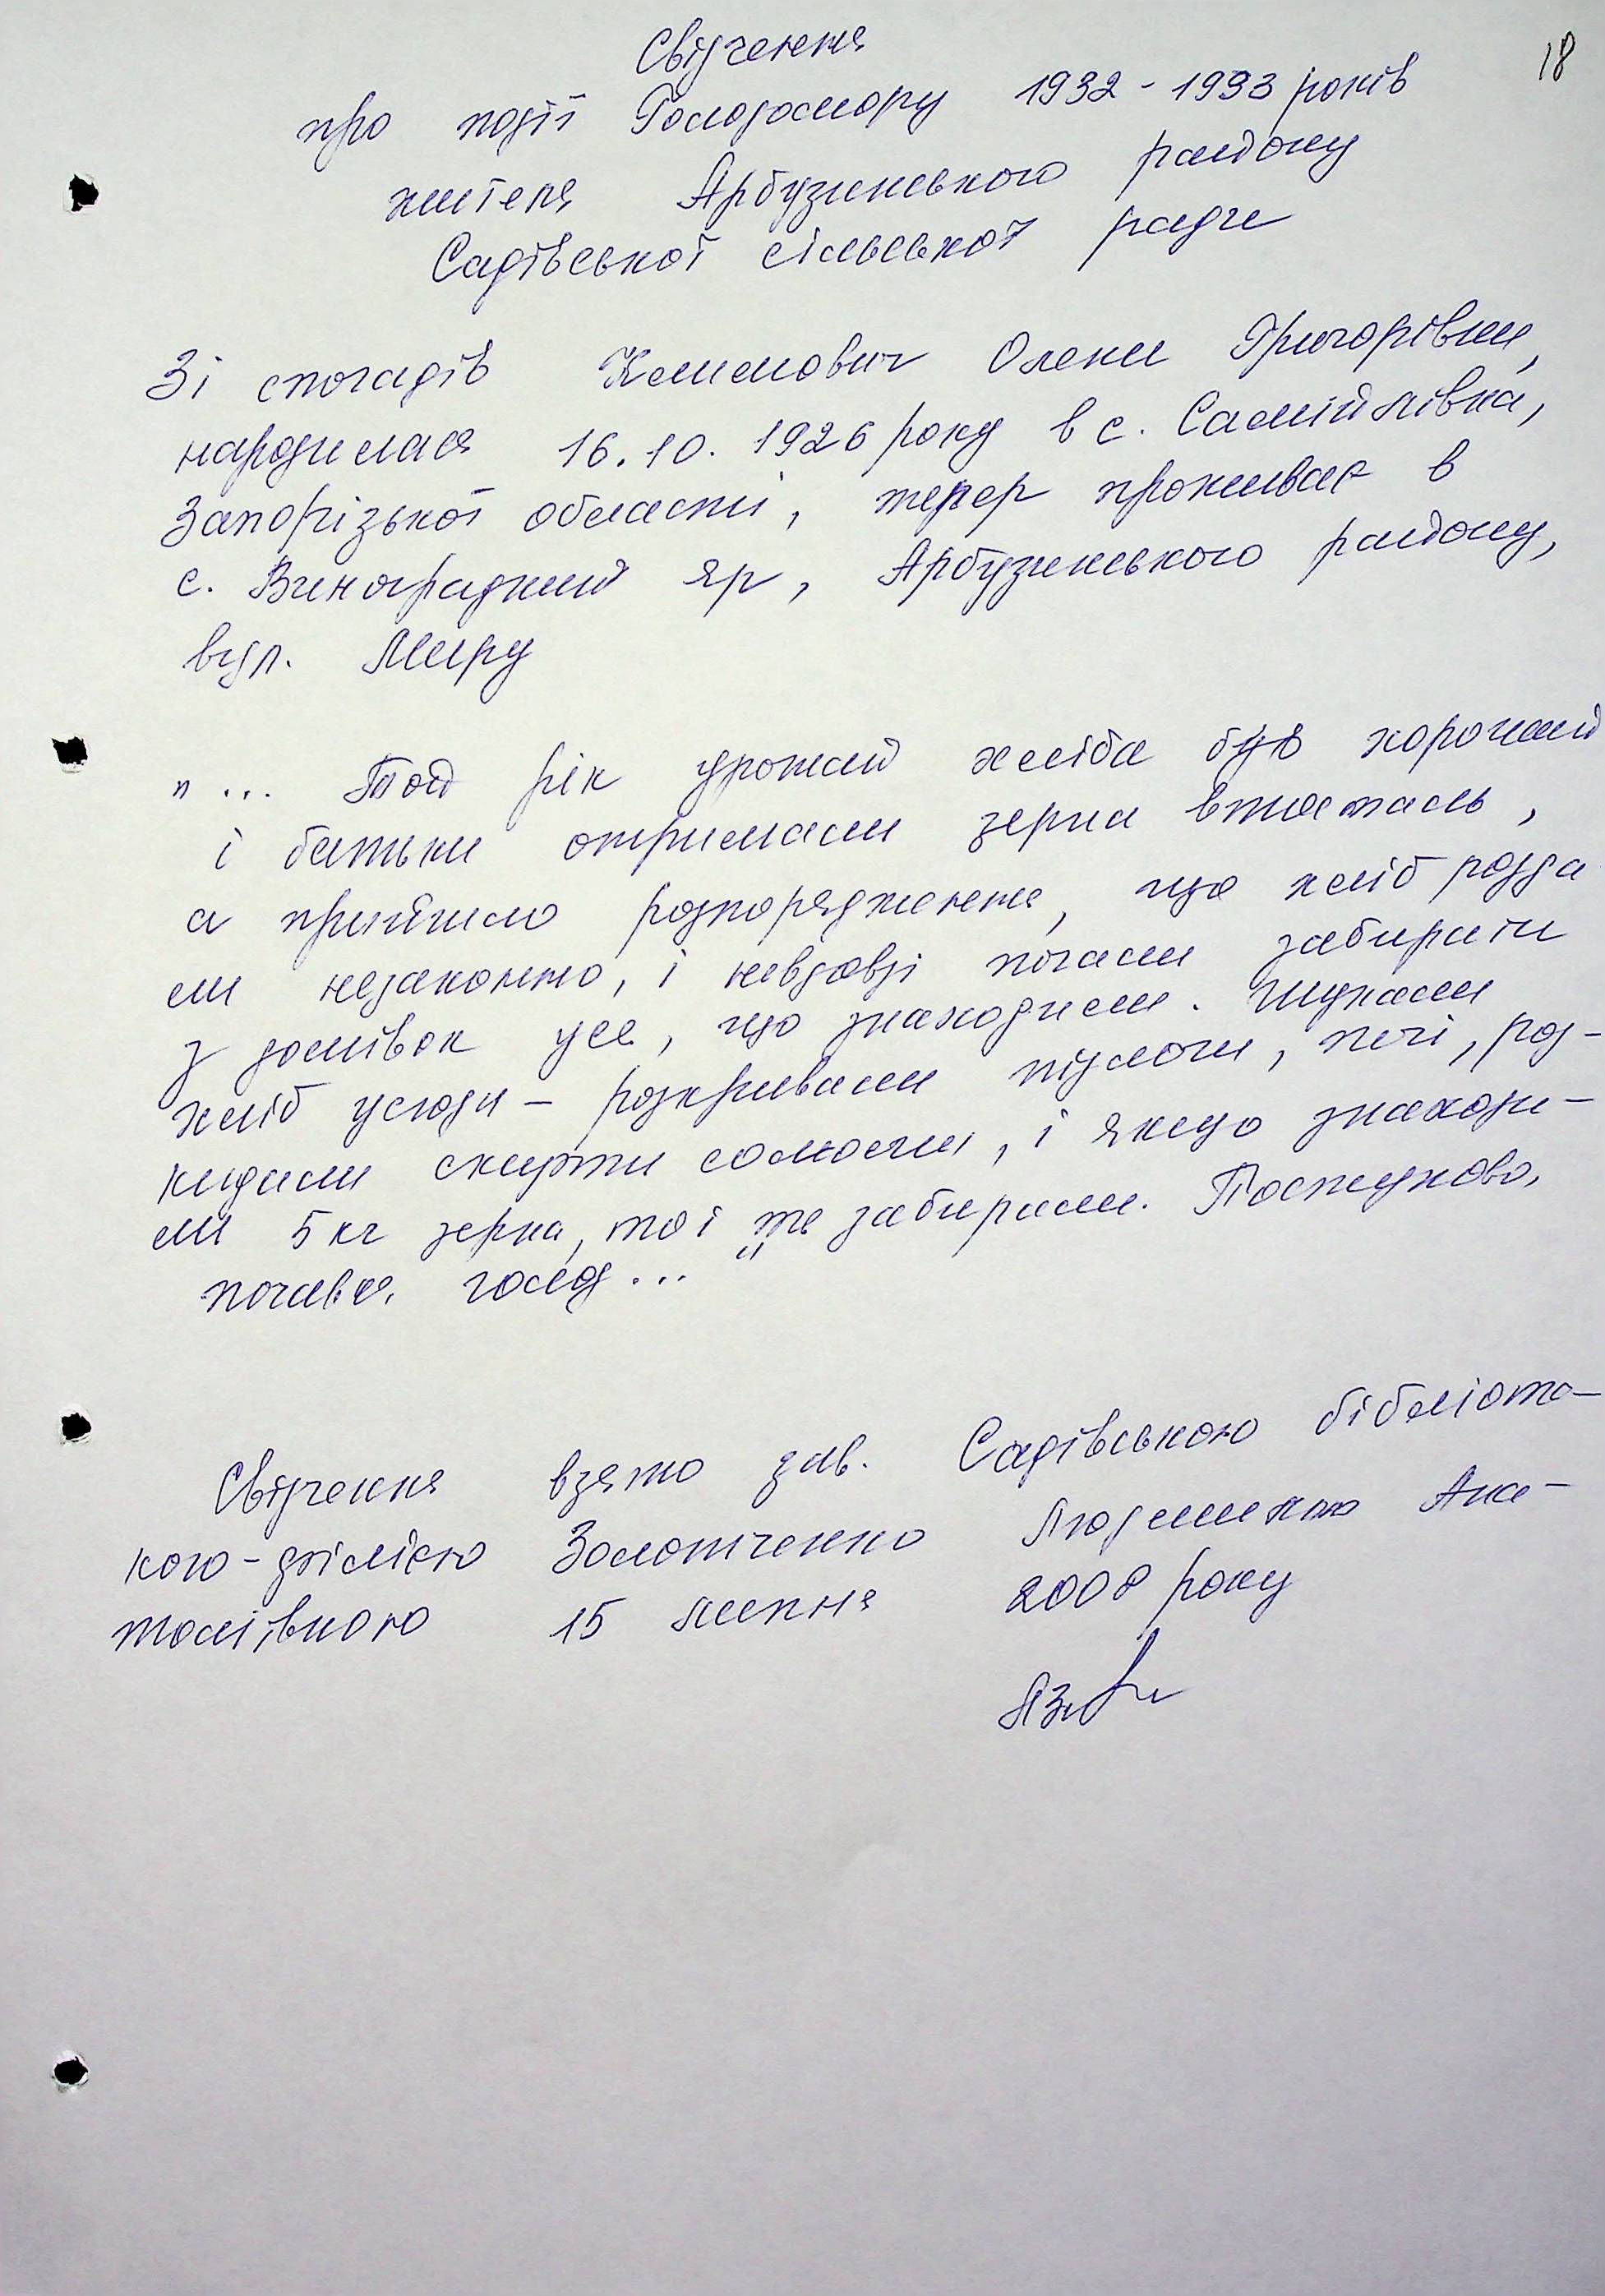 18
Свідчення
про події Голодомору 1932 - 1933 років
жителя Арбузинського району
Садівської сільської ради
Зі спогадів Климович Олени Григорівни,
народилася 16.10.1926 року в с. Самійлівка,
Запорізької області, тепер проживає в
с. Виноградний Яр, Арбузинського району,
вул. Миру
"... Той рік урожай хліба був хороший
і батьки отримали зерна вдосталь,
а прийшло розпорядження, що хліб розда
ли незаконно, і невдовзі почали забирати
з домівок усе, що знаходили. Шукали
хліб усюди – розкривали підлоги, печі, роз-
кидали скирти соломи, і якщо знаходи-
ли 5 кг зерна, то і те забирали. Поступово,
почався голод..."
Свідчення взято зав. Садівською бібліоте-
кою-філією Золотченко Людмилою Ана-
толіївною 15 липня 2008 року